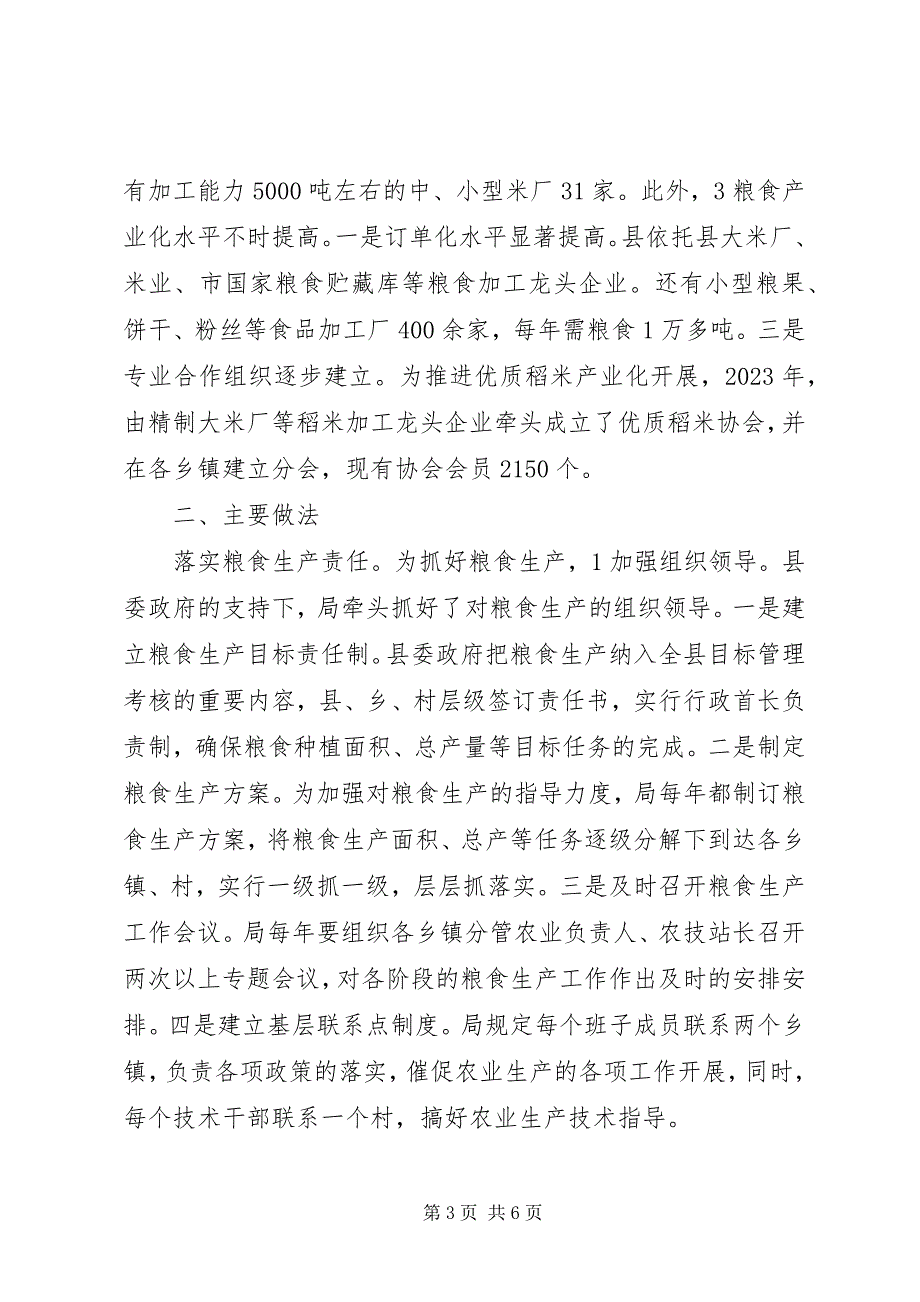 有加工能力 5000 吨左右的中、小型米厂 31 家。此外，3 粮食产
业化水平不时提高。一是订单化水平显著提高。县依托县大米厂、
米业、市国家粮食贮藏库等粮食加工龙头企业。还有小型粮果、
饼干、粉丝等食品加工厂 400 余家，每年需粮食 1 万多吨。三是
专业合作组织逐步建立。为推进优质稻米产业化开展，2023 年，
由精制大米厂等稻米加工龙头企业牵头成立了优质稻米协会，并
在各乡镇建立分会，现有协会会员 2150 个。
二、主要做法
落实粮食生产责任。为抓好粮食生产，1 加强组织领导。县
委政府的支持下，局牵头抓好了对粮食生产的组织领导。一是建
立粮食生产目标责任制。县委政府把粮食生产纳入全县目标管理
考核的重要内容，县、乡、村层级签订责任书，实行行政首长负
责制，确保粮食种植面积、总产量等目标任务的完成。二是制定
粮食生产方案。为加强对粮食生产的指导力度，局每年都制订粮
食生产方案，将粮食生产面积、总产等任务逐级分解下到达各乡
镇、村，实行一级抓一级，层层抓落实。三是及时召开粮食生产
工作会议。局每年要组织各乡镇分管农业负责人、农技站长召开
两次以上专题会议，对各阶段的粮食生产工作作出及时的安排安
排。四是建立基层联系点制度。局规定每个班子成员联系两个乡
镇，负责各项政策的落实，催促农业生产的各项工作开展，同时，
每个技术干部联系一个村，搞好农业生产技术指导。
第 3 页 共 6 页